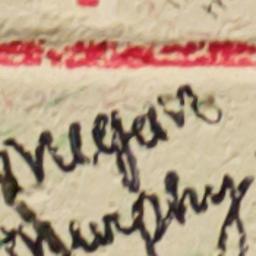 megan
murphy